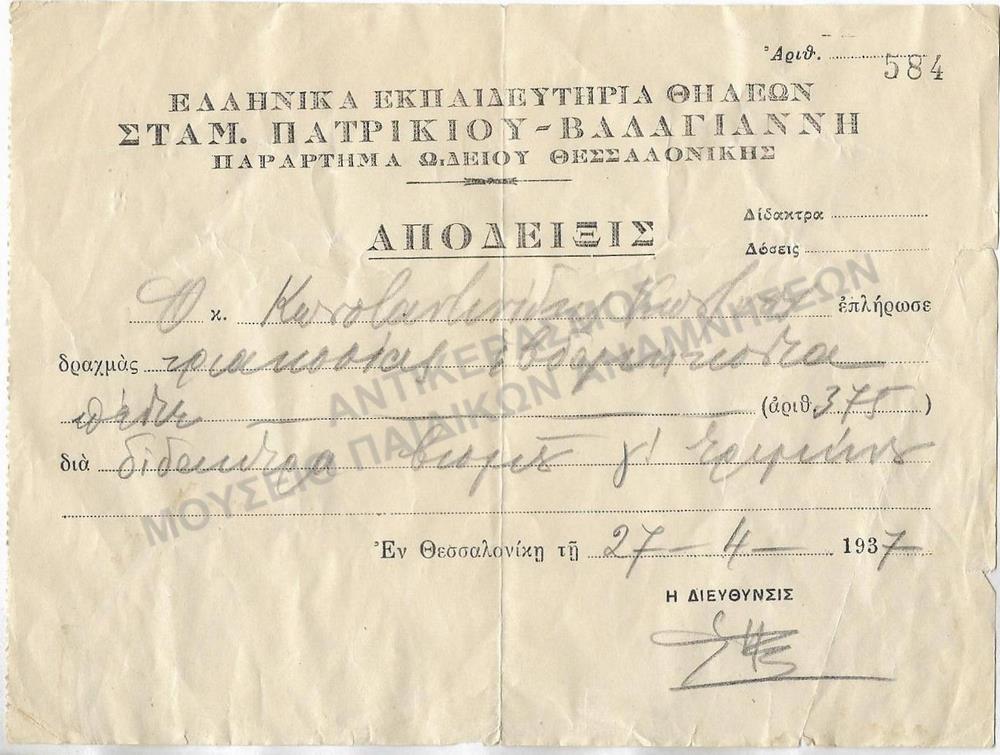 Ἀριθ. 584
ΕΛΛΗΝΙΚΑ ΕΚΠΑΙΔΕΥΤΗΡΙΑ ΘΗΛΕΩΝ
ΣΤΑΜ. ΠΑΤΡΙΚΙΟΥ-ΒΑΛΑΓΙΑΝΝΗ
ΠΑΡΑΡΤΗΜΑ ΩΔΕΙΟΥ ΘΕΣΣΑΛΟΝΙΚΗΣ
Δίδακτρα
ΑΠΟΔΕΙΞΙΣ
Δόσεις
Ὁ κ. ἐπλήρωσε
δραχμὰς τριακοσίας ἑβδομήκοντα
πέντε (ἀριθ. 375)
διὰ δίδακτρα γ'
Ἐν Θεσσαλονίκῃ τῇ 27-4-1937
Η ΔΙΕΥΘΥΝΣΙΣ
ΑΝΤΙΚΕΡΑΣΜΟΣ
ΜΟΥΣΕΙΟ ΠΑΙΔΙΚΩΝ ΑΝΑΜΝΗΣΕΩΝ